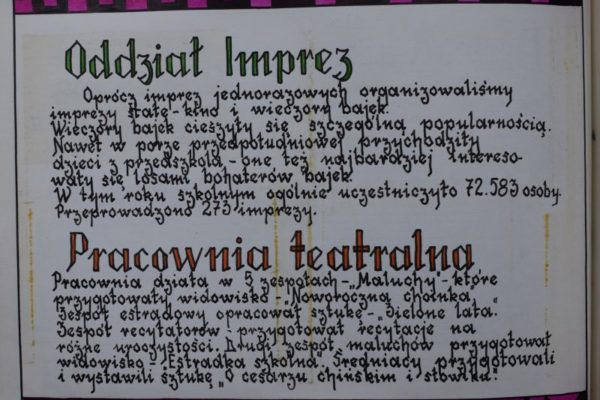 Oddział Imprez
Oprócz imprez jednorazowych organizowaliśmy
imprezy stałe - kino i wieczory bajek.
Wieczory bajek cieszyły się szczególną popularnością.
Nawet w porze przedpołudniowej przychodziły
dzieci z przedszkola - one też najbardziej intereso-
wały się losami bohaterów bajek.
W tym roku szkolnym ogólnie uczestniczyło 72.583 osoby.
Przeprowadzono 273 imprezy.
Pracownia teatralna
Pracownia działa w 5 zespołach - „Maluchy" - które
przygotowały widowisko - „Noworoczna choinka".
Zespół estradowy opracował sztukę - „Zielone lata."
Zespół recytatorów - przygotował recytacje na
różne uroczystości. Drugi zespół maluchów przygotował
widowisko - „Estradka szkolna". Średniacy przygotowali
i wystawili sztukę „O cesarzu chińskim i słowiku."